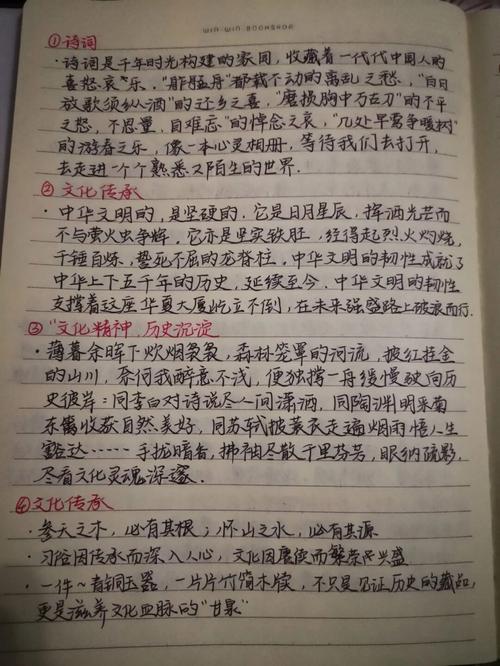 WIN-WIN BOOKSHOP
①诗词
·诗词是千年时光构建的家园，收藏着一代代中国人的
喜怒哀乐，"舴艋舟"都载不动的离乱之愁，"白日
放歌须纵酒"的还乡之喜，"磨损胸中万古刀"的不平
之怒，不思量，自难忘"的悼念之哀，"几处早莺争暖树"
的游春之乐，像一本心灵相册，等待我们去打开，
去走进一个个熟悉又陌生的世界.
②文化传承
·中华文明的，是坚硬的.它是日月星辰，挥洒光芒而
不与萤火虫争辉，它亦是坚实铁胚，经得起烈火灼烧，
千锤百炼，誓死不屈的龙脊柱，中华文明的韧性成就了
中华上下五千年的历史，延续至今.中华文明的韧性
支撑着这座华夏大厦屹立不倒，在未来强盛路上破浪而行.
③"文化精神，历史沉淀
·薄暮余晖下炊烟袅袅，森林笼罩的河流，披红挂金
的山川，奈何我醉意不浅，便独撑一舟缓慢驶向历
史彼岸：同李白对诗说尽人间潇洒，同陶渊明采菊
东篱收获自然美好，同苏轼披蓑衣走遍烟雨悟人生
豁达……手拢暗香，拂袖尽散千里芬芳，眼纳疏影，
尽看文化灵魂深邃.
④文化传承
·参天之木，必有其根；怀山之水，必有其源
·习俗因传承而深入人心，文化因赓续而繁荣兴盛
·一件~青铜玉器，一片片竹简木牍，不只是见证历史的藏品，
更是滋养文化血脉的"甘果"